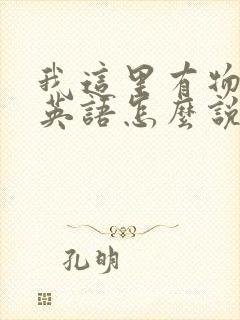 我這里有物
英語怎麼說
孔明